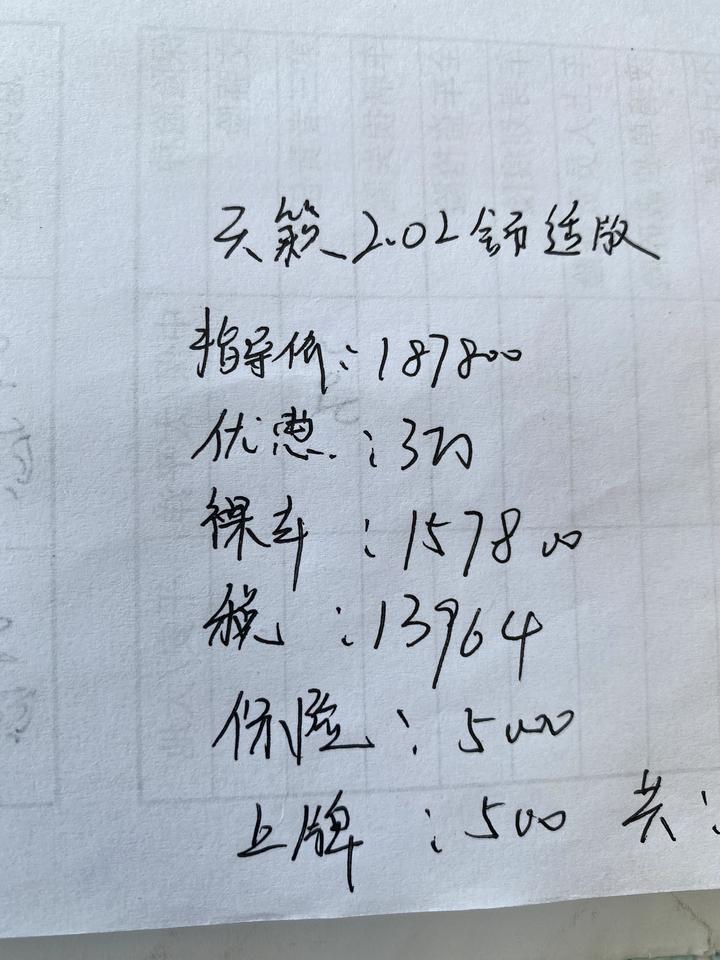 天籁2.0L舒适版
指导价:187800
优惠:3万
裸车:157800
税:13964
保险:5000
上牌:500 共: